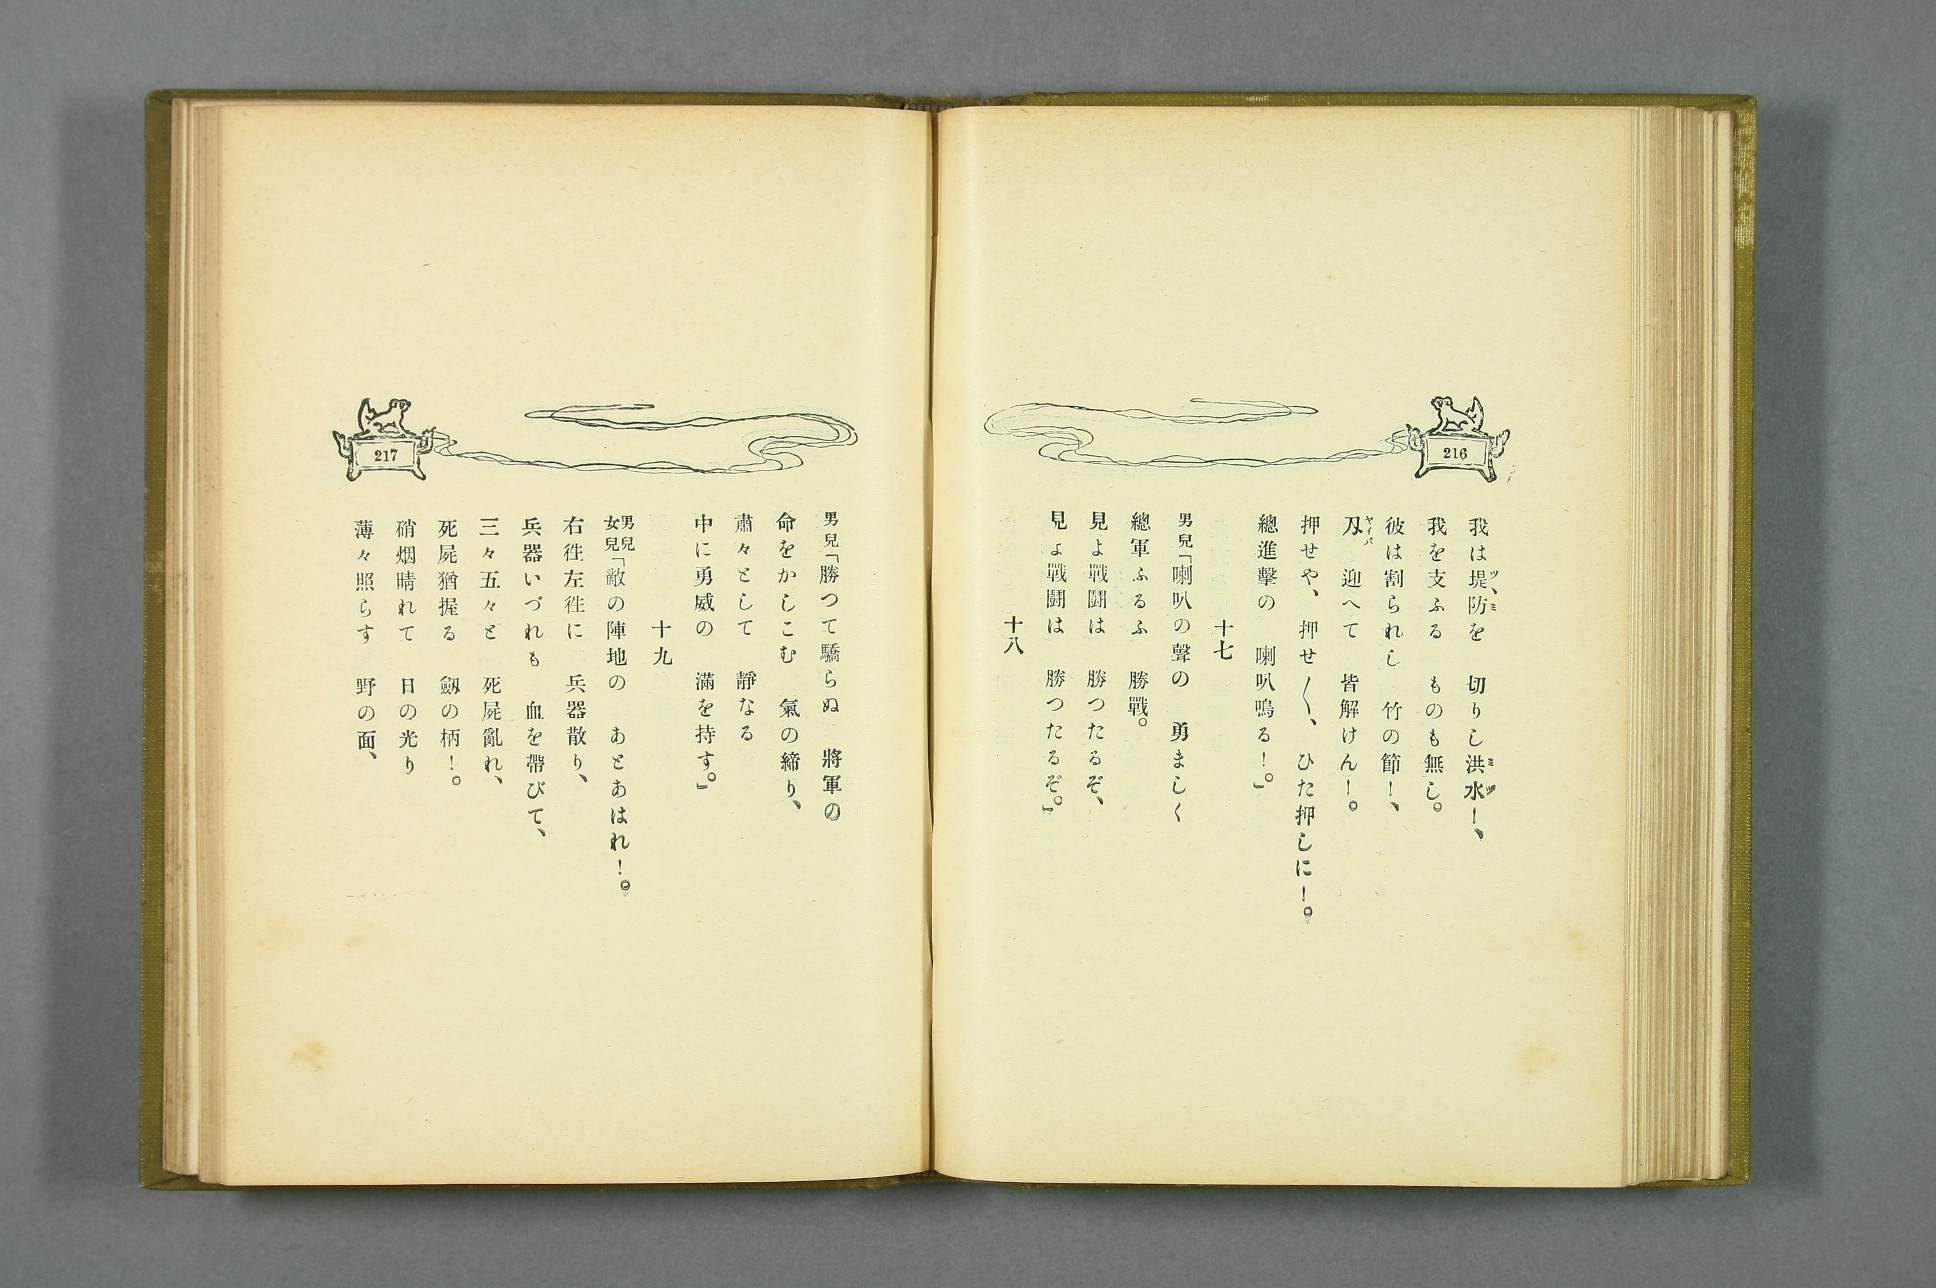 216
我は堤防を　切りし洪水！、
ツヽミ
ミヅ
我を支ふる　ものも無し。
彼は割られし　竹の節！、
刄　迎へて　皆解けん！。
ヤイバ
押せや、押せ〳〵、ひた押しに！。
總進擊の　喇叭鳴る！。」
十七
男兒「喇叭の聲の　勇ましく
總軍ふるふ　勝戰。
見よ戰鬪は　勝つたるぞ、
見よ戰鬪は　勝つたるぞ。」
十八
217
男兒「勝つて驕らぬ　將軍の
命をかしこむ　氣の締り、
肅々として　靜なる
中に勇威の　滿を持す。」
十九
男兒
女兒「敵の陣地の　あとあはれ！。
右徃左徃に　兵器散り、
兵器いづれも　血を帶びて、
三々五々と　死屍亂れ、
死屍猶握る　劔の柄！。
硝烟晴れて　日の光り
薄々照らす　野の面、